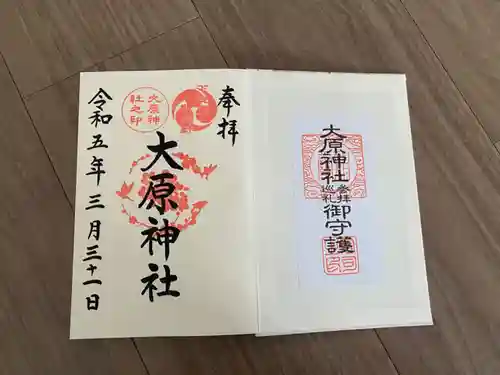 奉拝
大原神社
大原神
社之印
令和五年三月三十一日
大原神社
参拝
巡礼
御守護